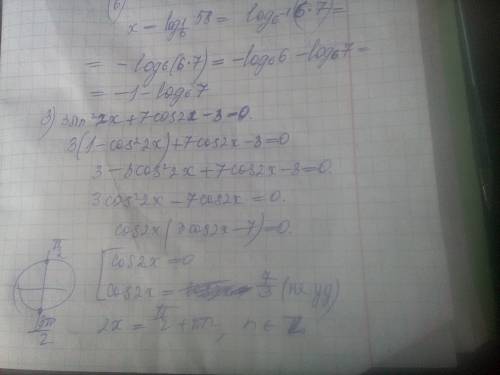 б)
x = log_{1/6} 58 = log_{6^{-1}}(6·7) =
= -log₆(6·7) = -log₆6 - log₆7 =
= -1 - log₆7
3) 3sin²2x + 7cos2x - 3 = 0.
3(1 - cos²2x) + 7cos2x - 3 = 0
3 - 3cos²2x + 7cos2x - 3 = 0.
3cos²2x - 7cos2x = 0.
cos2x(3cos2x - 7) = 0.
π/2
[cos2x = 0
cos2x = 7/3 (не уд)
3π/2
2x = π/2 + πn, n ∈ Z